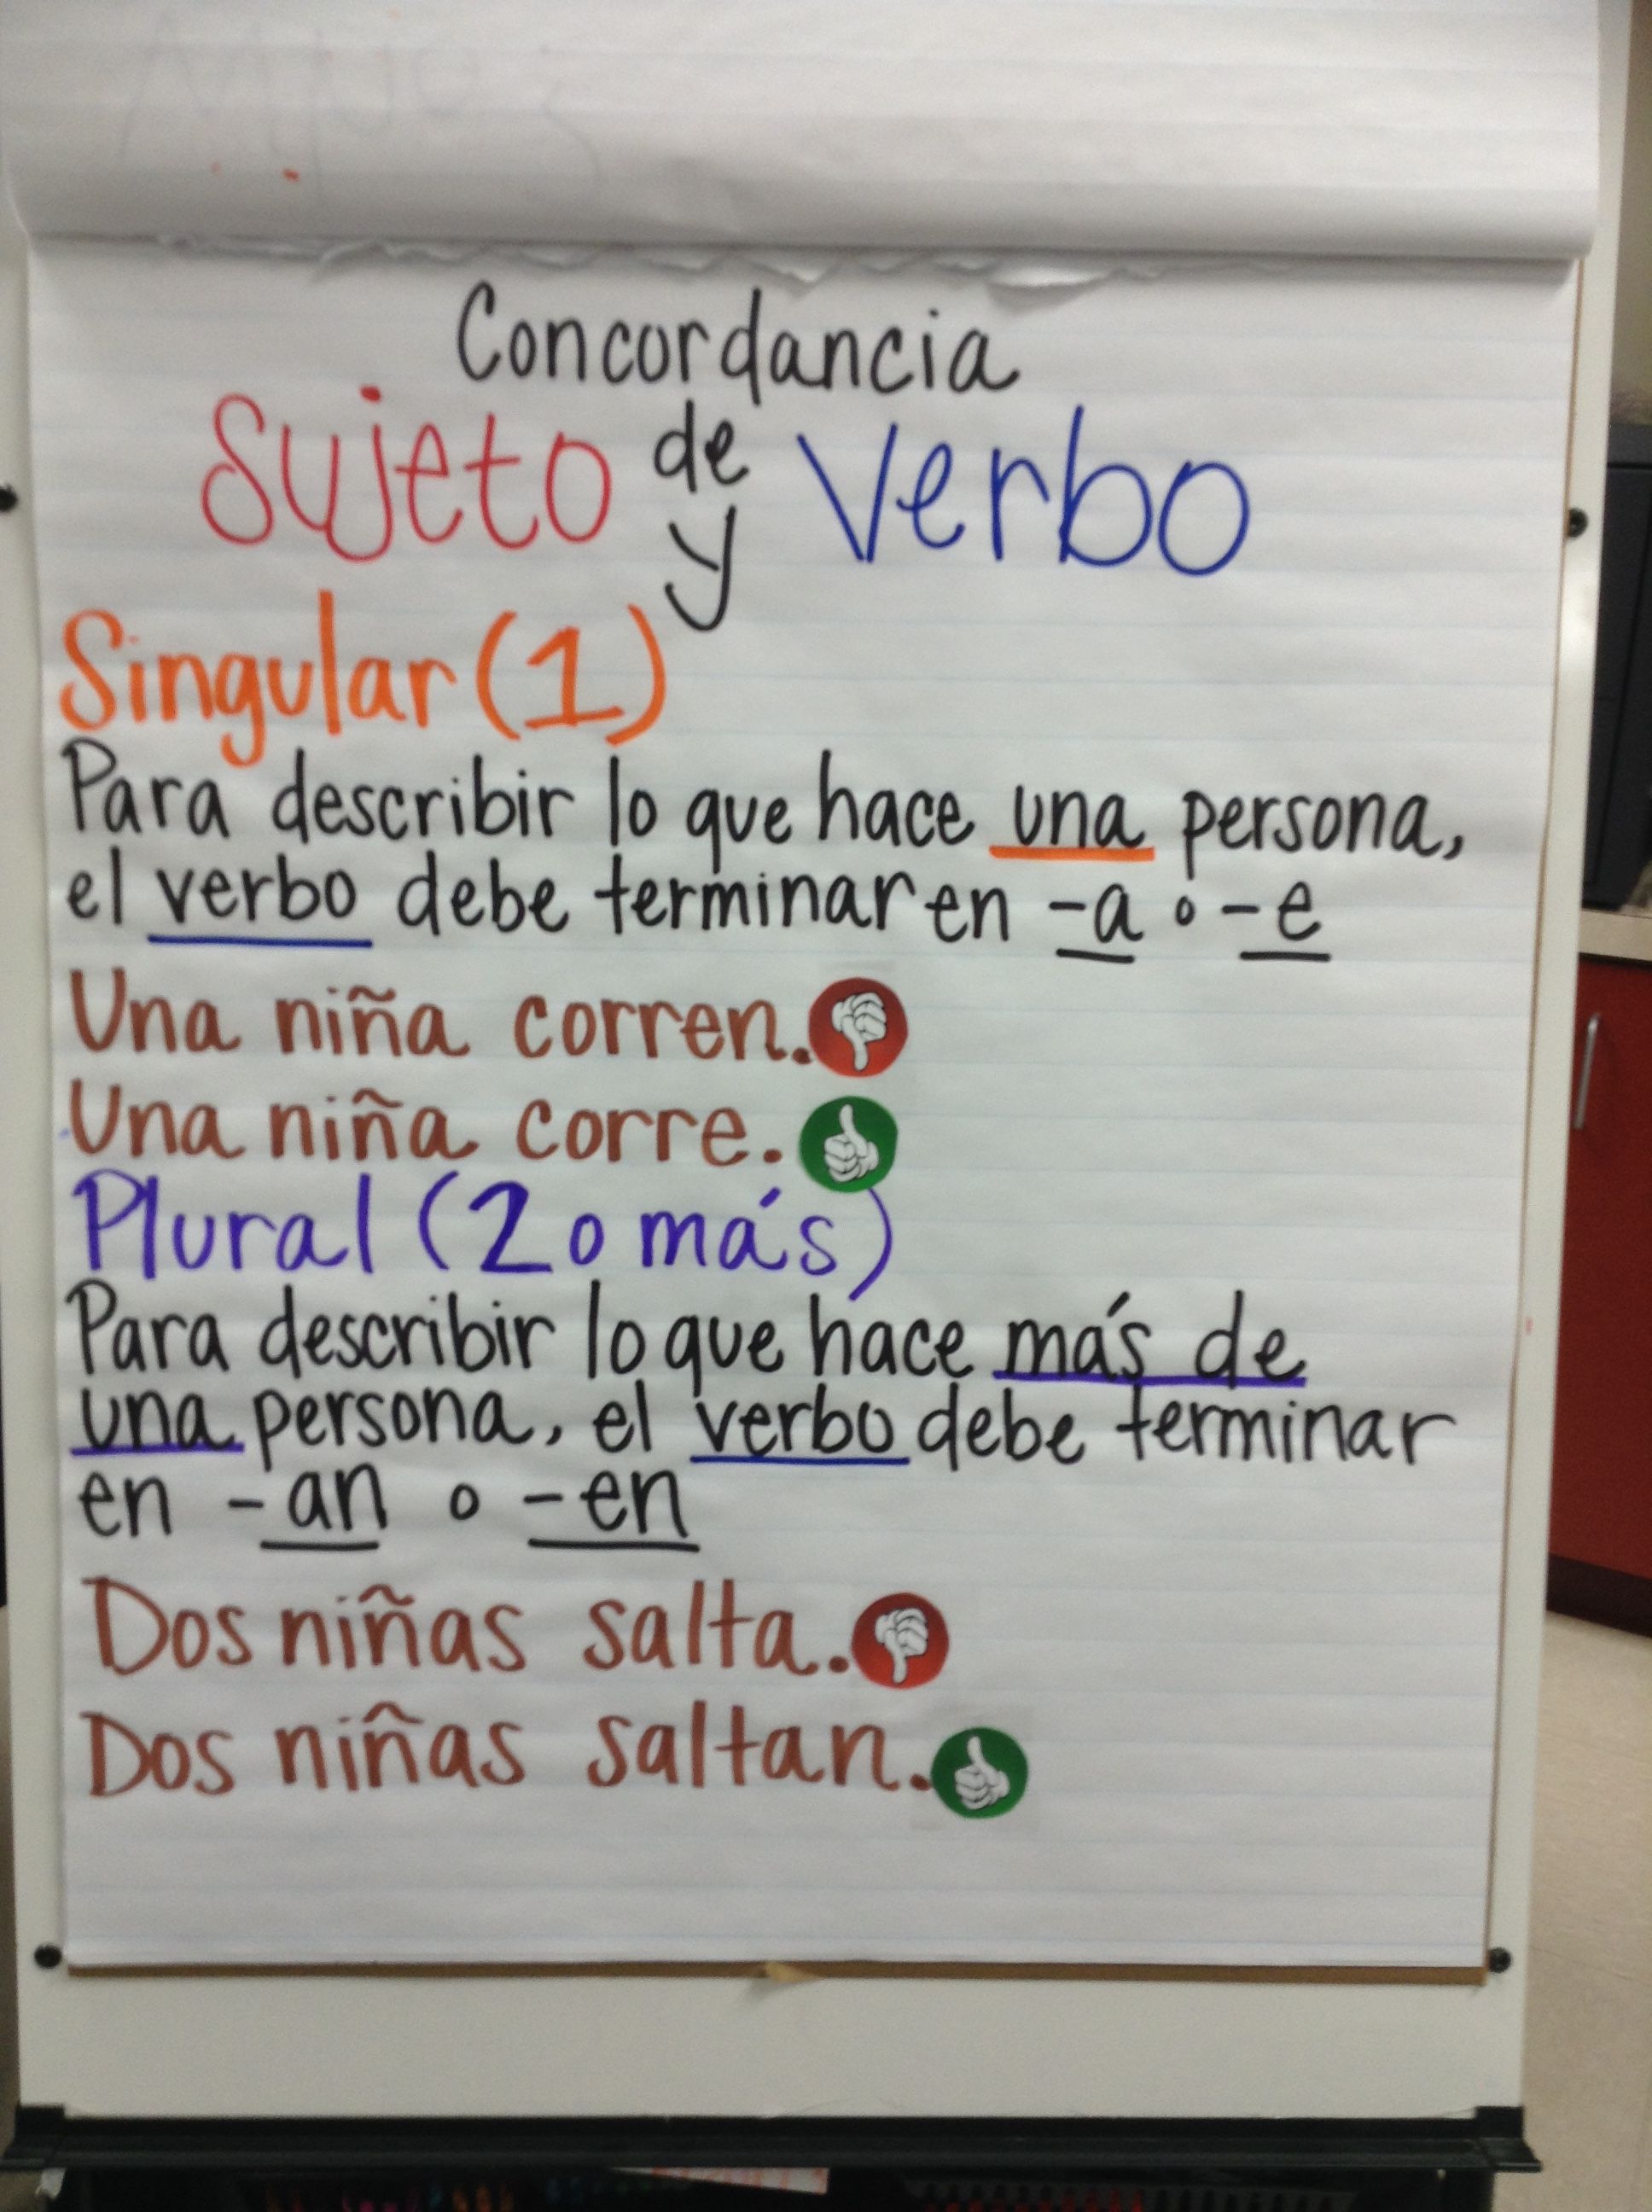 Concordancia
de
Sujeto y Verbo
Singular (1)
Para describir lo que hace una persona,
el verbo debe terminar en -a o -e
Una niña corren.
Una niña corre.
Plural (2 o más)
Para describir lo que hace más de
una persona, el verbo debe terminar
en -an o -en
Dos niñas salta.
Dos niñas saltan.